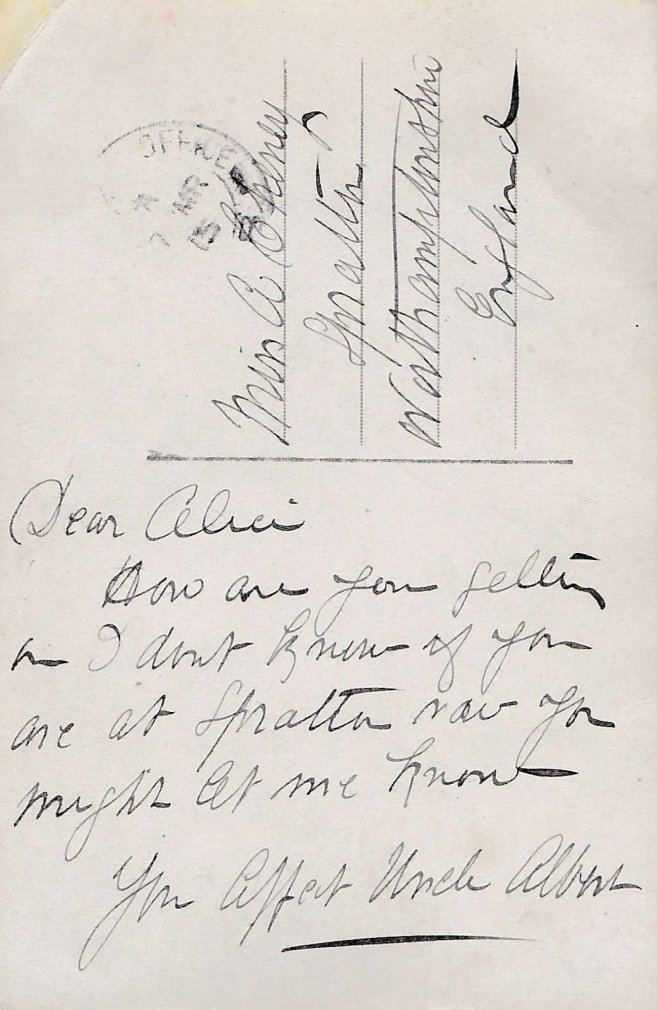 OFFICE
A
7 MR
15
Miss A Chaney
Spratton
Northamptonshire
England
Dear Alice
How are you getting
on I dont know if you
are at Spratton now you
might let me know
You Affect Uncle Albert